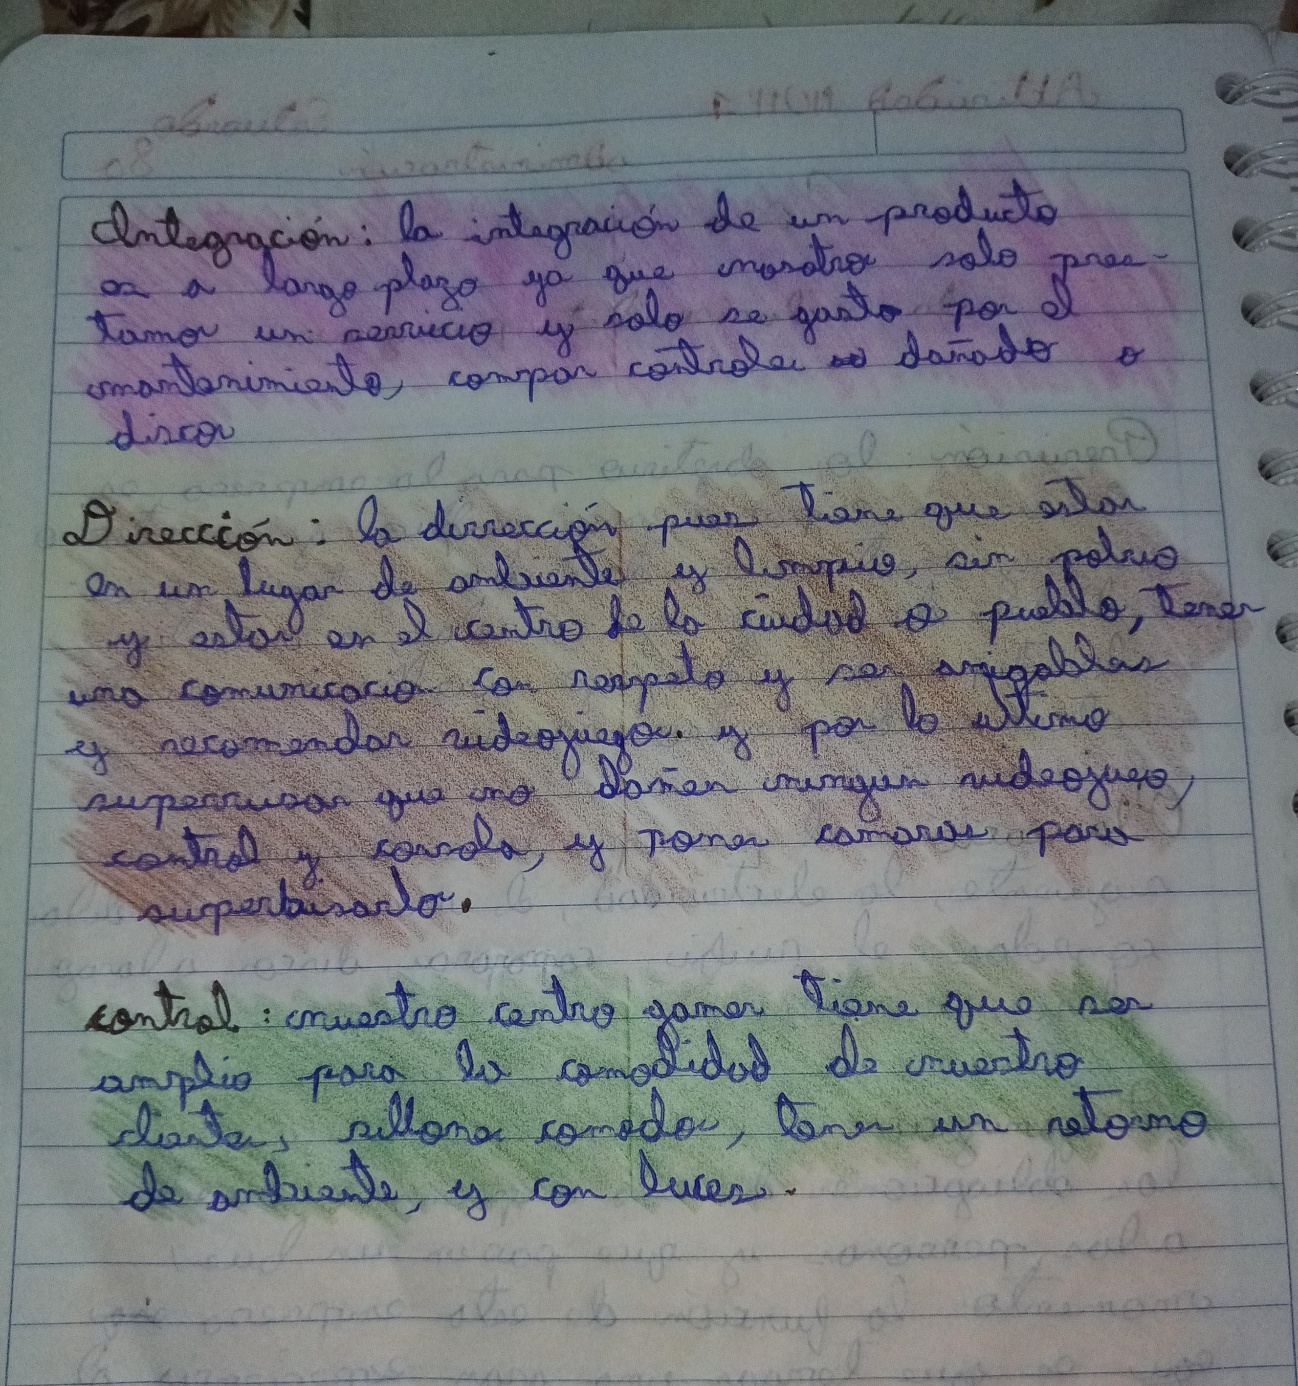 Integración: la integración de un producto
es a largo plazo ya que nosotros solo pres-
tamos un servicio y solo se gasta por el
mantenimiento, compar controles dañados o
discos
Dirección: la dirrección pues tiene que estar
en un lugar de ambiente y limpio, sin polvo
y estar en el centro de la ciudad o pueblo, tener
una comunicacion con respeto y ser amigables
y recomendar videojuegos. y por lo ultimo
supervisar que no dañen ningun videojuego,
control y consola, y poner camaras para
superbisarlos.
control: nuestro centro gamer tiene que ser
amplio para la comodidad de nuestro
clientes, sillones comodos, tener un retorno
de ambiente, y con luces.